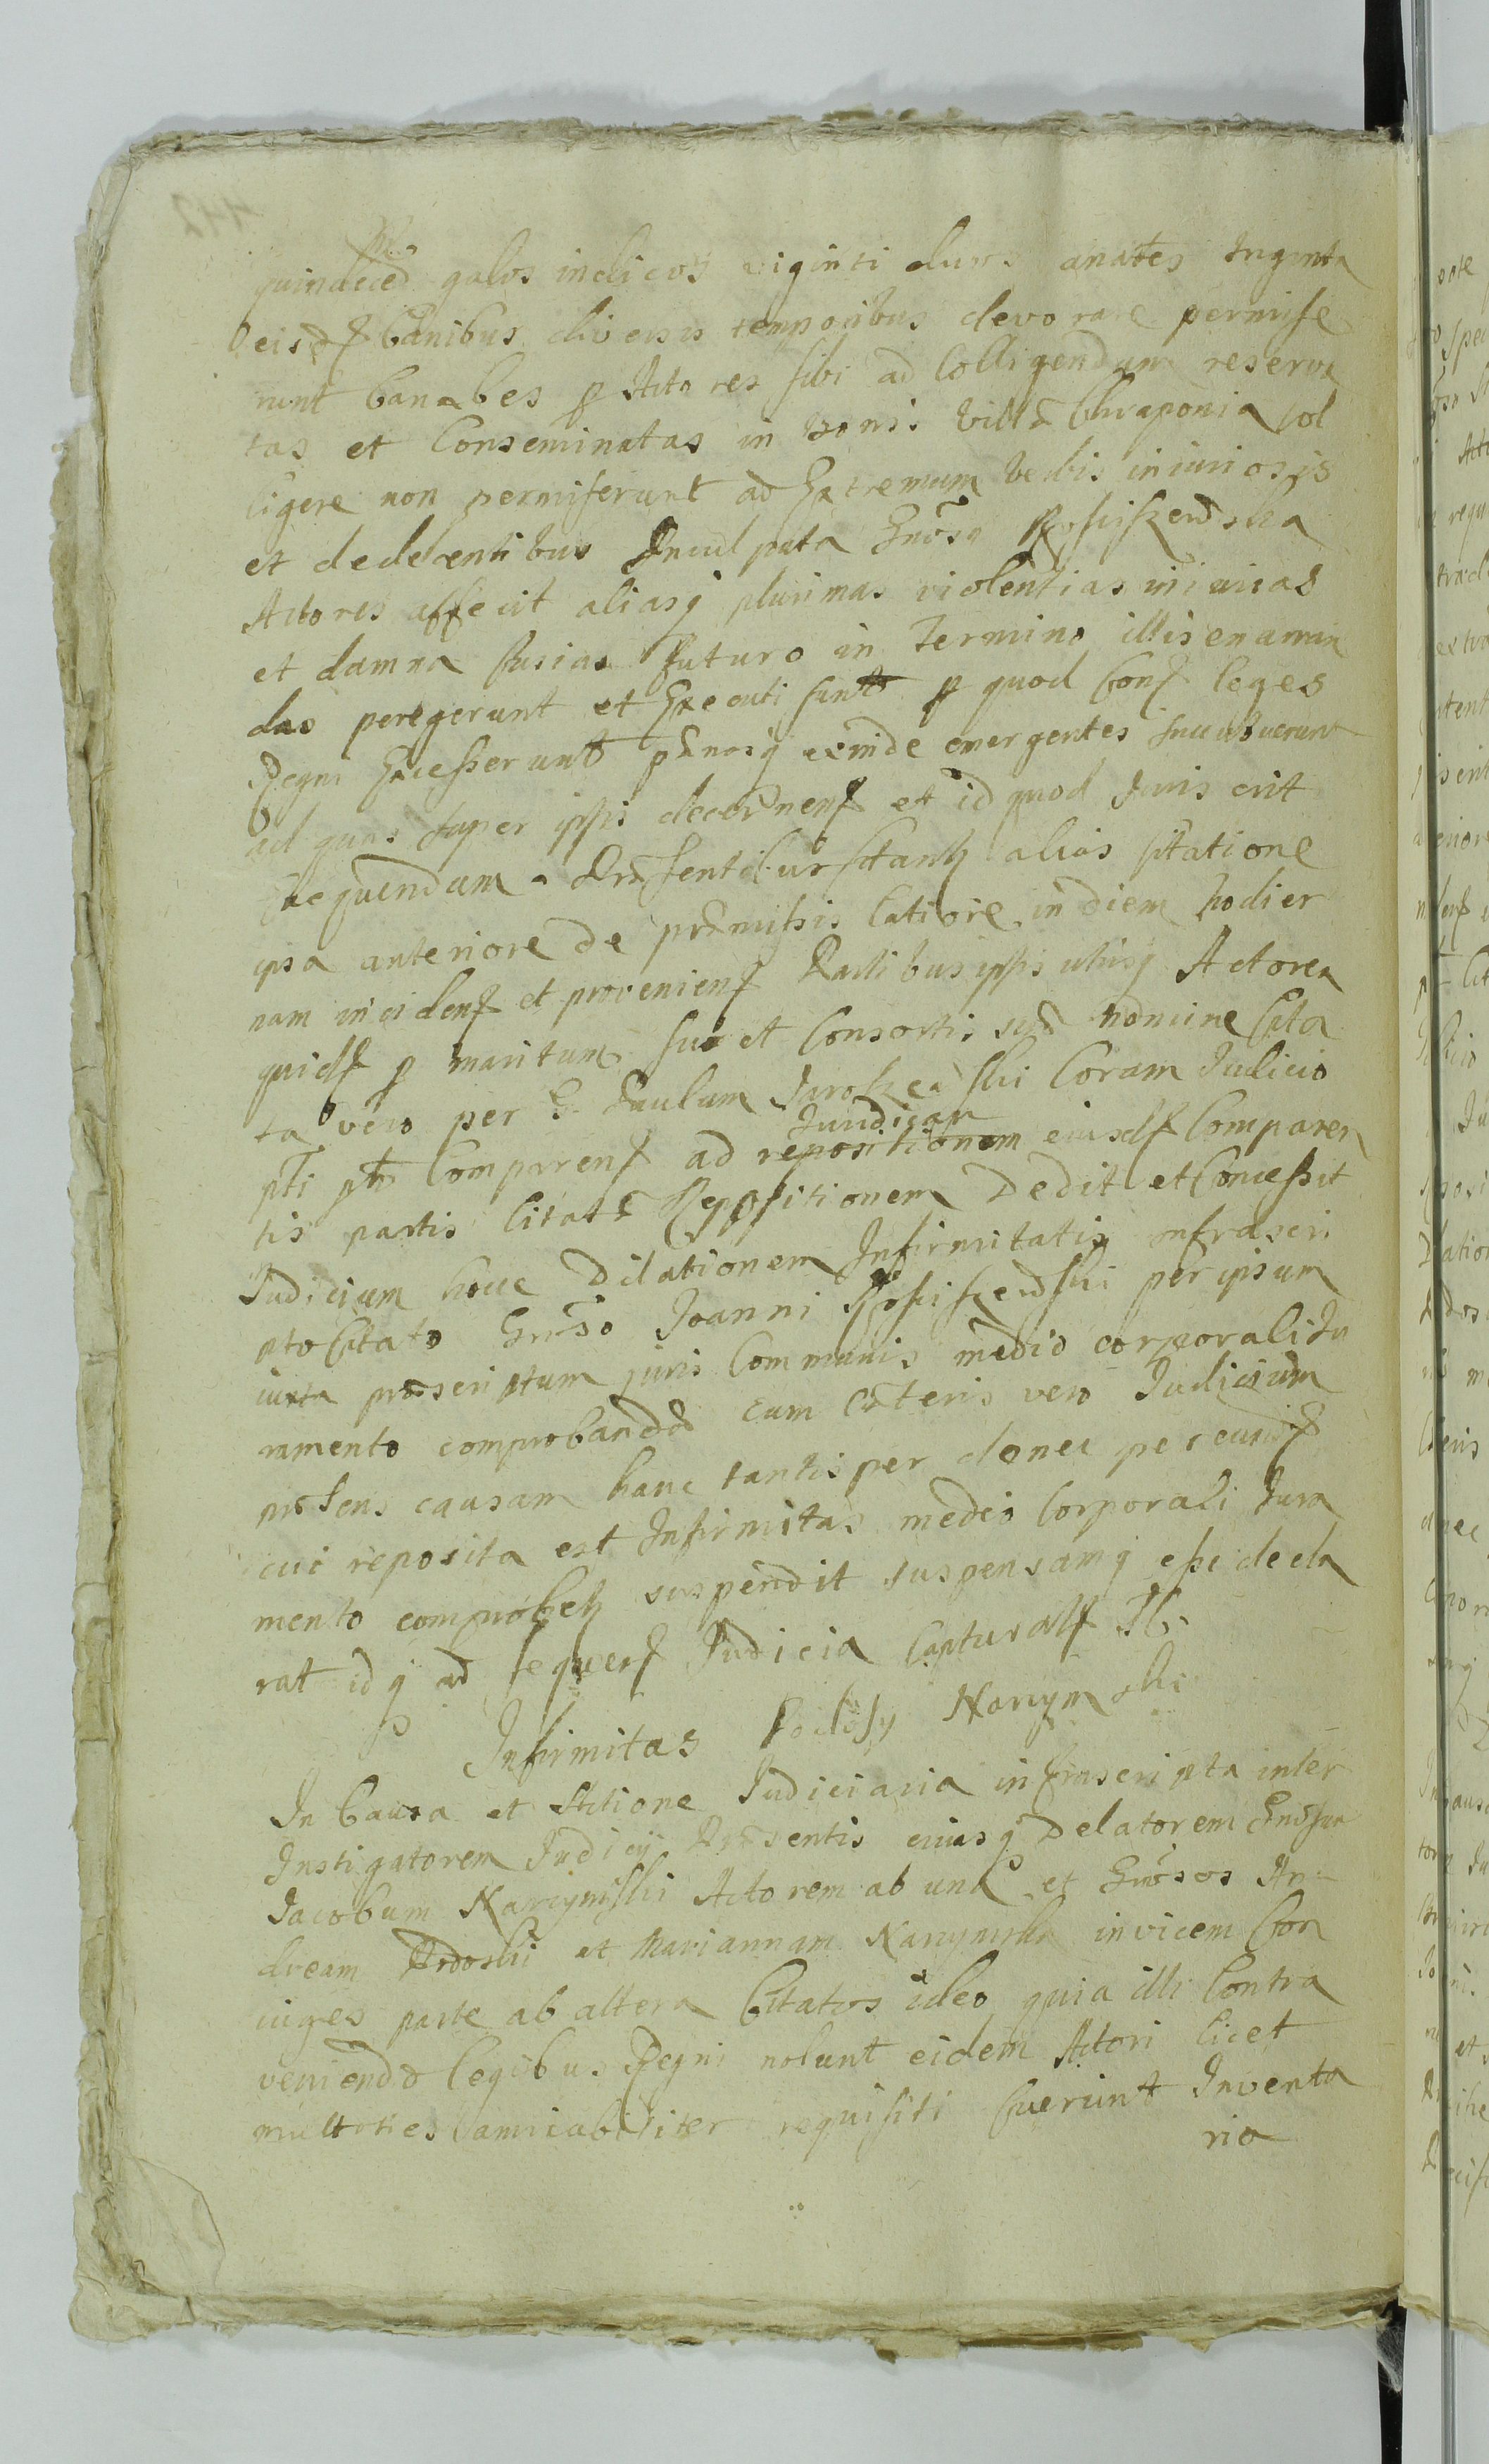 quindeced galos indicos viginti duos anates triginta
eisdf Canibus diversis temporibus devorare permise
runt Canabes p Actores sibi ad Colligendum reserva
tas et Conseminatas in bonis Villæ Chraponia col
ligere non permiserunt ad Extremum verbis iniuriosis
et dedecentibus Inculpata Gnosa
Actores affecit aliasq plurimas violentias iniurias
et damna fusius futuro in Termino illis enarran
das peregerunt et Executi sunt p quod Conf leges
Regni Excesserunt pænasq exinde emergentes Incubuerunt
ad quas super ipsis decernenf et id quod Iuris erit
exequendum Præsenti alias Citatione
ipsa anteriore de præmissis latiore in diem hodier
nam incidenf et provenienf Partibus ipsis utrisq Actorea
quidf p maritum suo et Consortis suæ nomine Cita
ta vero per G. Paulum Coram Iudicio
pti pns Comparenf ad Iuridicam repositionem eiusdf Comparen
tis partis Citatæ Repositionem Dedit et Concessit
Iudicium hocce Dilationem Infirmitatis infrascri
pto Citato Gnoso Joanni per ipsum
iuxta præscriptum juris Communis medio corporali Iu
ramento comprobandæ cum Cæteris vero Iudicium
præsens causam hanc tantisper donec per eundf
cui reposita est Infirmitas medio Corporali Iura
mento comprobetz suspendit suspensamq esse decla
rat idq ad sequenf Iudicia Capturalf
Infirmitas Narzymski
In Causa et Actione Iudiciaria infrascripta inter
Instigatorem Iudicij Præsentis eiusq Delatorem Gnosum
Jacobum Narzymski Actorem ab una et Gnosos An-
dream et Mariannam Narzymska invicem Con
iuges parte ab altera Citatos ideo quia illi Contra
veniendo legibus Regni nolunt eidem Actori licet
multoties amicabiliter requisiti fuerunt Inventa
ria